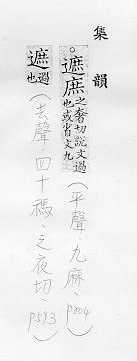 集韻
。遮庶之奢切說文過也或省文九(平聲、九麻、p204)
遮過也(去聲、四十禡、之夜切、p593)